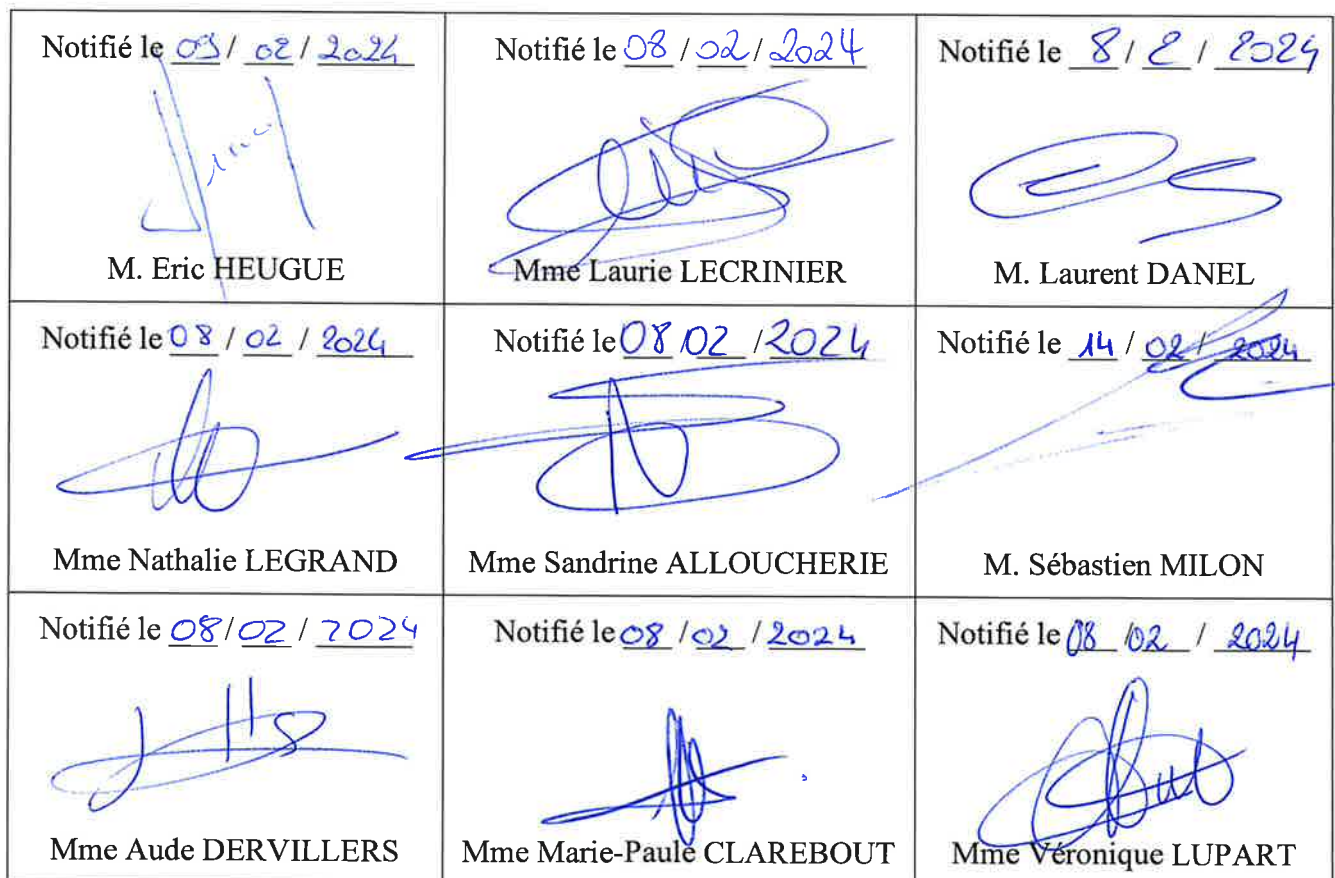 Notifié le 09 / 02 / 2024
M. Eric HEUGUE
Notifié le 08 / 02 / 2024
Mme Laurie LECRINIER
Notifié le 8 / 2 / 2024
M. Laurent DANEL
Notifié le 08 / 02 / 2024
Mme Nathalie LEGRAND
Notifié le 08 02 / 2024
Mme Sandrine ALLOUCHERIE
Notifié le 14 / 02 / 2024
M. Sébastien MILON
Notifié le 08 / 02 / 2024
Mme Aude DERVILLERS
Notifié le 08 / 02 / 2024
Mme Marie-Paule CLAREBOUT
Notifié le 08 / 02 / 2024
Mme Véronique LUPART